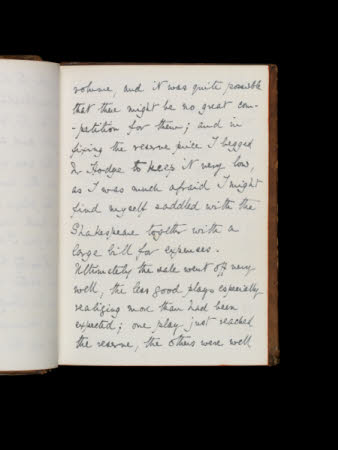 volume, and it was quite possible
that there might be no great com-
-petition for them; and in
fixing the reserve price I begged
Hodge to keep it very low,
as I was much afraid I might
find myself saddled with the
Shakespeare together with a
large bill for expenses.
Ultimately the sale went off very
well, the less good plays especially
realizing more than had been
expected; one play just reached
the reserve, the others were well